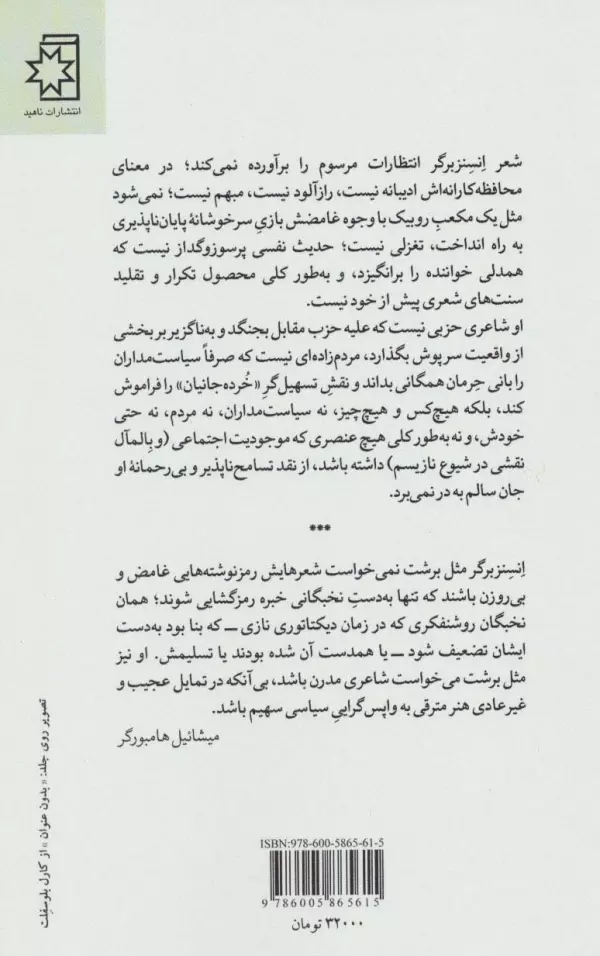 انتشارات ناهید
شعر اِنسِنزبرگر انتظارات مرسوم را برآورده نمی‌کند؛ در معنای
محافظه‌کارانه‌اش ادیبانه نیست، رازآلود نیست، مبهم نیست؛ نمی‌شود
مثل یک مکعبِ روبیک با وجوه غامضش بازیِ سرخوشانهٔ پایان‌ناپذیری
به راه انداخت، تغزلی نیست؛ حدیث نفسی پرسوزوگداز نیست که
همدلی خواننده را برانگیزد، و به‌طور کلی محصول تکرار و تقلید
سنت‌های شعری پیش از خود نیست.
او شاعری حزبی نیست که علیه حزب مقابل بجنگد و به‌ناگزیر بر بخشی
از واقعیت سرپوش بگذارد، مردم‌زاده‌ای نیست که صرفاً سیاست‌مداران
را بانی حِرمان همگانی بداند و نقشِ تسهیل‌گرِ «خُرده‌جانیان» را فراموش
کند، بلکه هیچ‌کس و هیچ‌چیز، نه سیاست‌مداران، نه مردم، نه حتی
خودش، و نه به‌طور کلی هیچ عنصری که موجودیت اجتماعی (و بِالمآل
نقشی در شیوع نازیسم) داشته باشد، از نقد تسامح‌ناپذیر و بی‌رحمانهٔ او
جان سالم به در نمی‌برد.
***
اِنسِنزبرگر مثل برشت نمی‌خواست شعرهایش رمزنوشته‌هایی غامض و
بی‌روزن باشند که تنها به‌دستِ نخبگانی خبره رمزگشایی شوند؛ همان
نخبگان روشنفکری که در زمان دیکتاتوری نازی ــ که بنا بود به‌دست
ایشان تضعیف شود ــ یا همدست آن شده بودند یا تسلیمش. او نیز
مثل برشت می‌خواست شاعری مدرن باشد، بی‌آنکه در تمایل عجیب و
غیرعادی هنر مترقی به واپس‌گراییِ سیاسی سهیم باشد.
میشائیل هامبورگر
تصویر روی جلد: «بدون عنوان» از کارل بلوسفِلت
ISBN:978-600-5865-61-5
9 786005 865615
۳۲۰۰۰ تومان